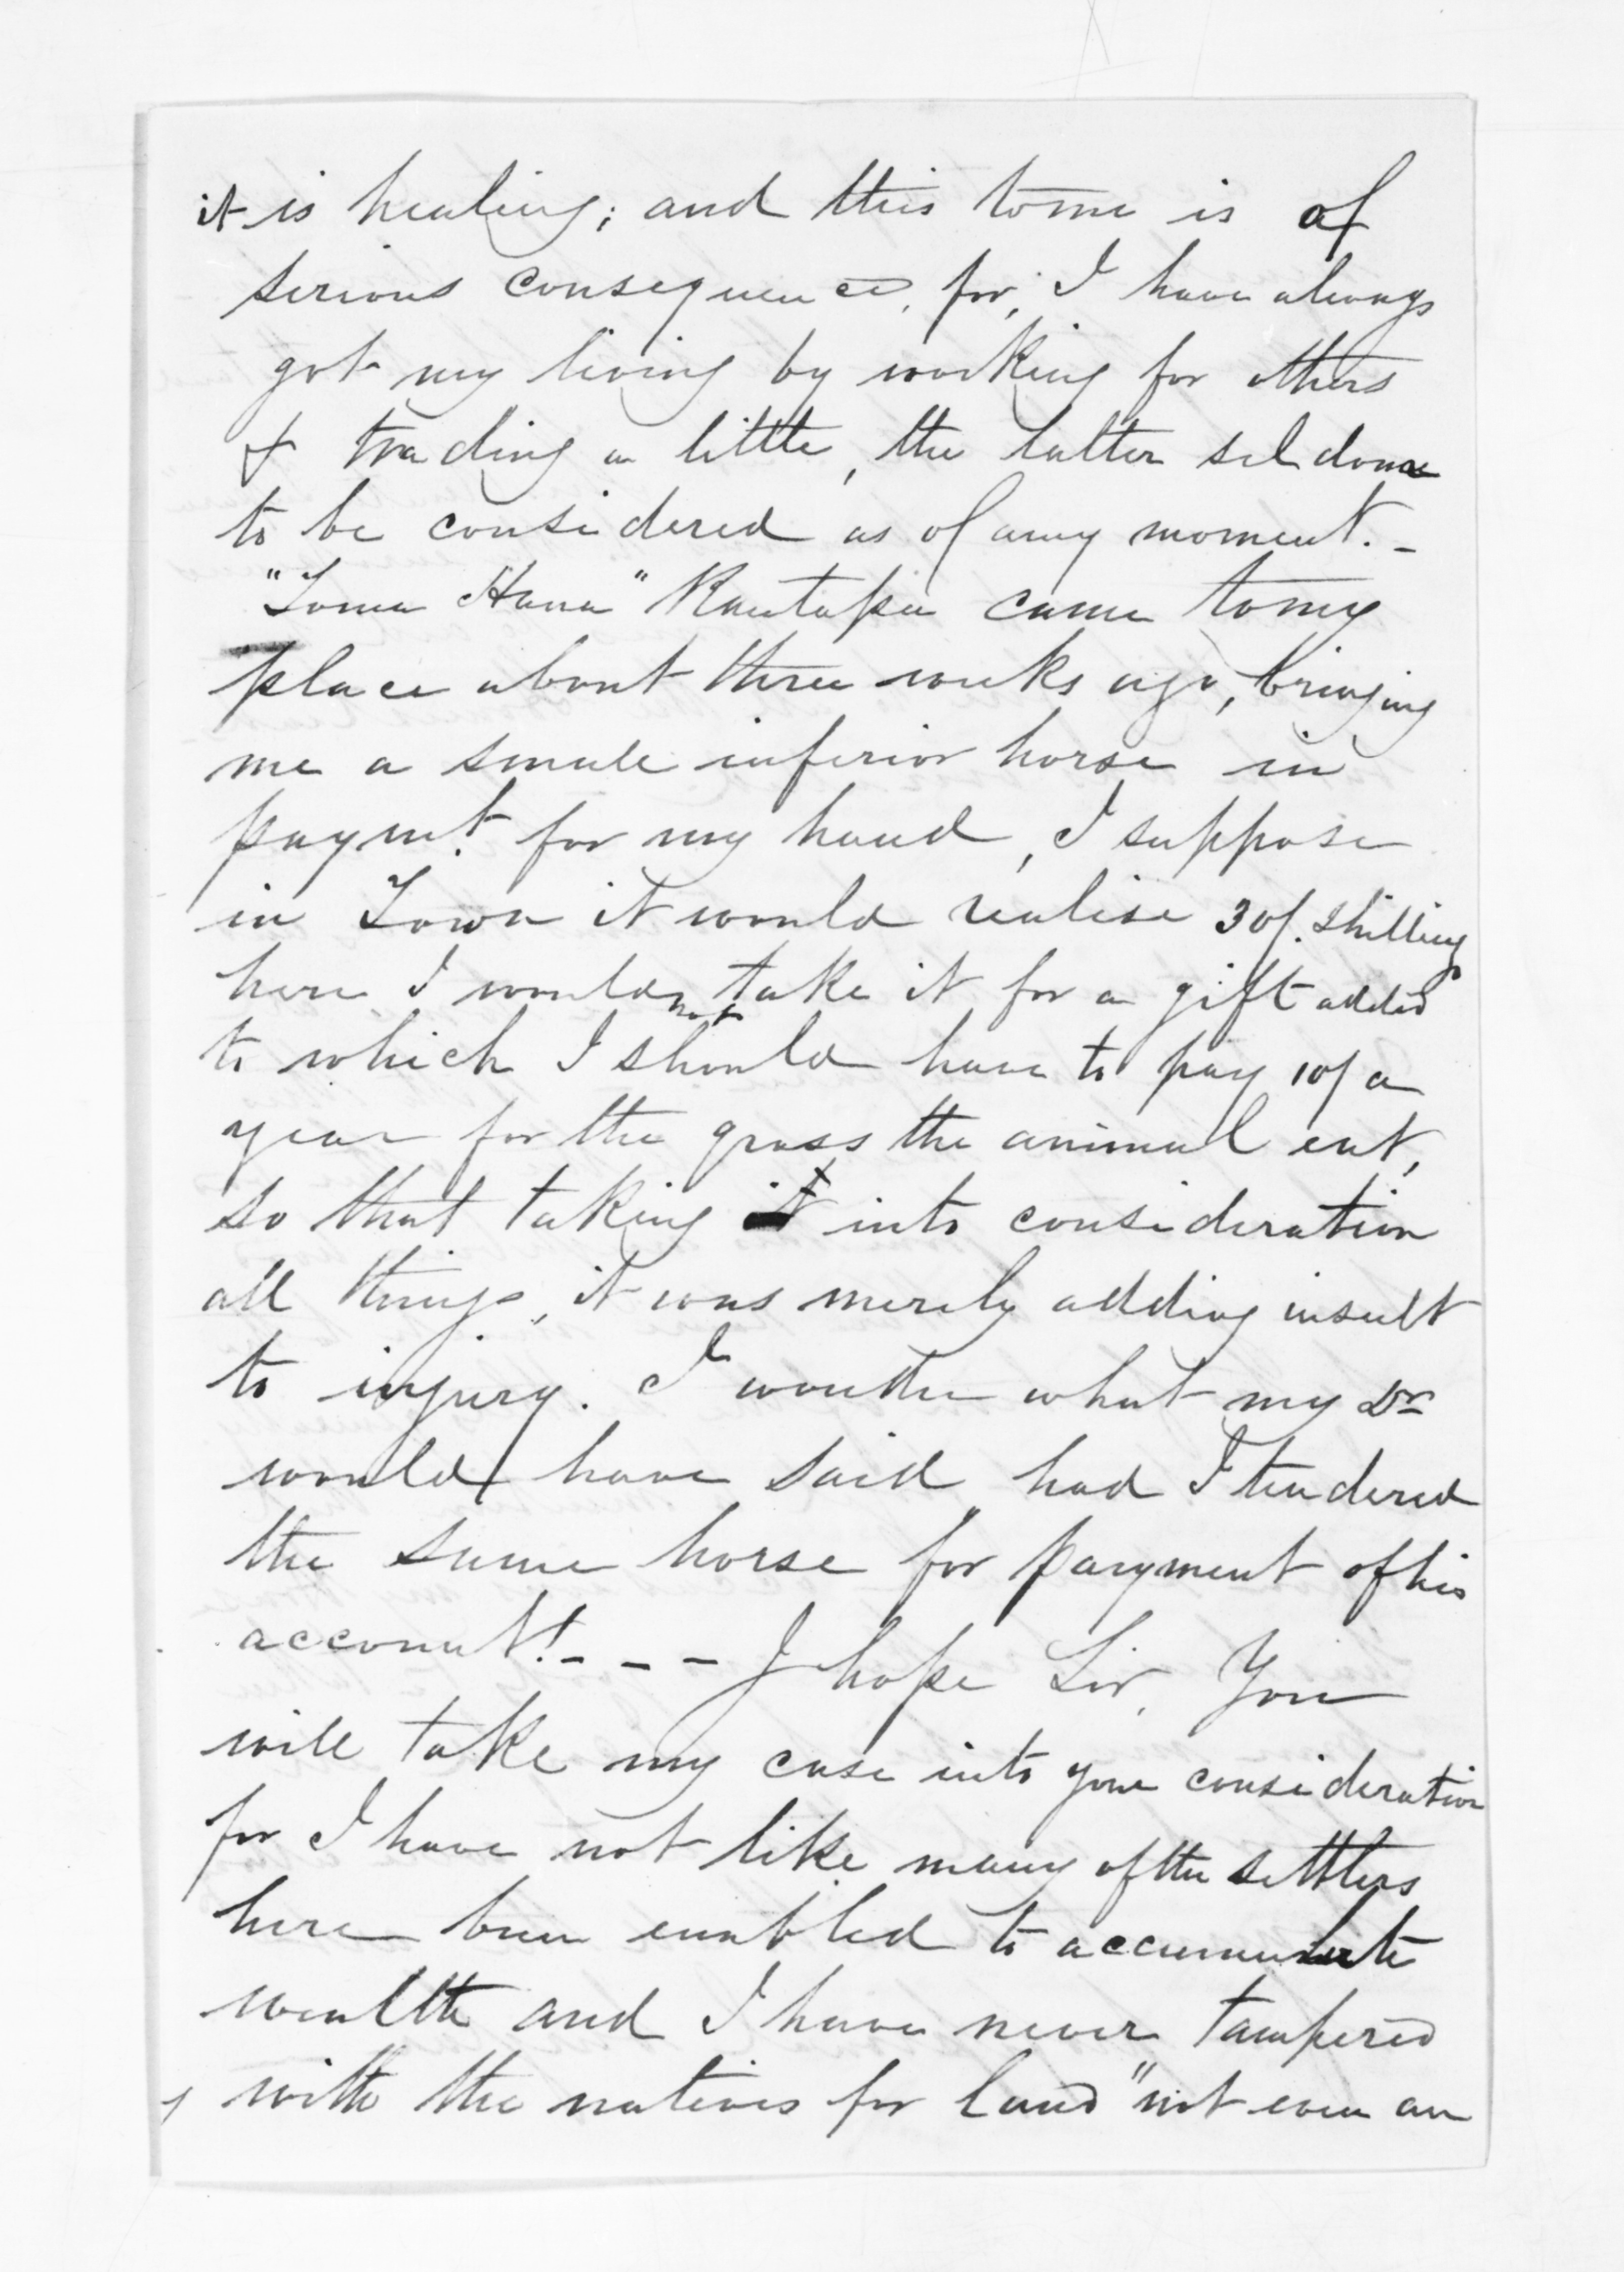 it is healing; and this to me is of
serious consequence, for, I have always
got my living by working for others
& trading a little, the latter seldom
to be considered as of any moment. –
"Toma Hana" Rautapu came to my
place about three weeks ago, bringing
me a small inferior horse in
paymt for my hand, I suppose
in Town it would realise 30/. shillings
here I would not take it for a gift added
to which I should have to pay 10/ a
year for the grass the animal eat,
so that taking it into consideration
all things, it was merely adding insult
to injury. I wonder what my Dr
would have said had I tendered
the same horse for payment of his
account! – – – I hope Sir, You
will take my case into your consideration
for I have not like many of the settlers
here been enabled to accumulate
wealth and I have never tampered
with the natives for land "not even an